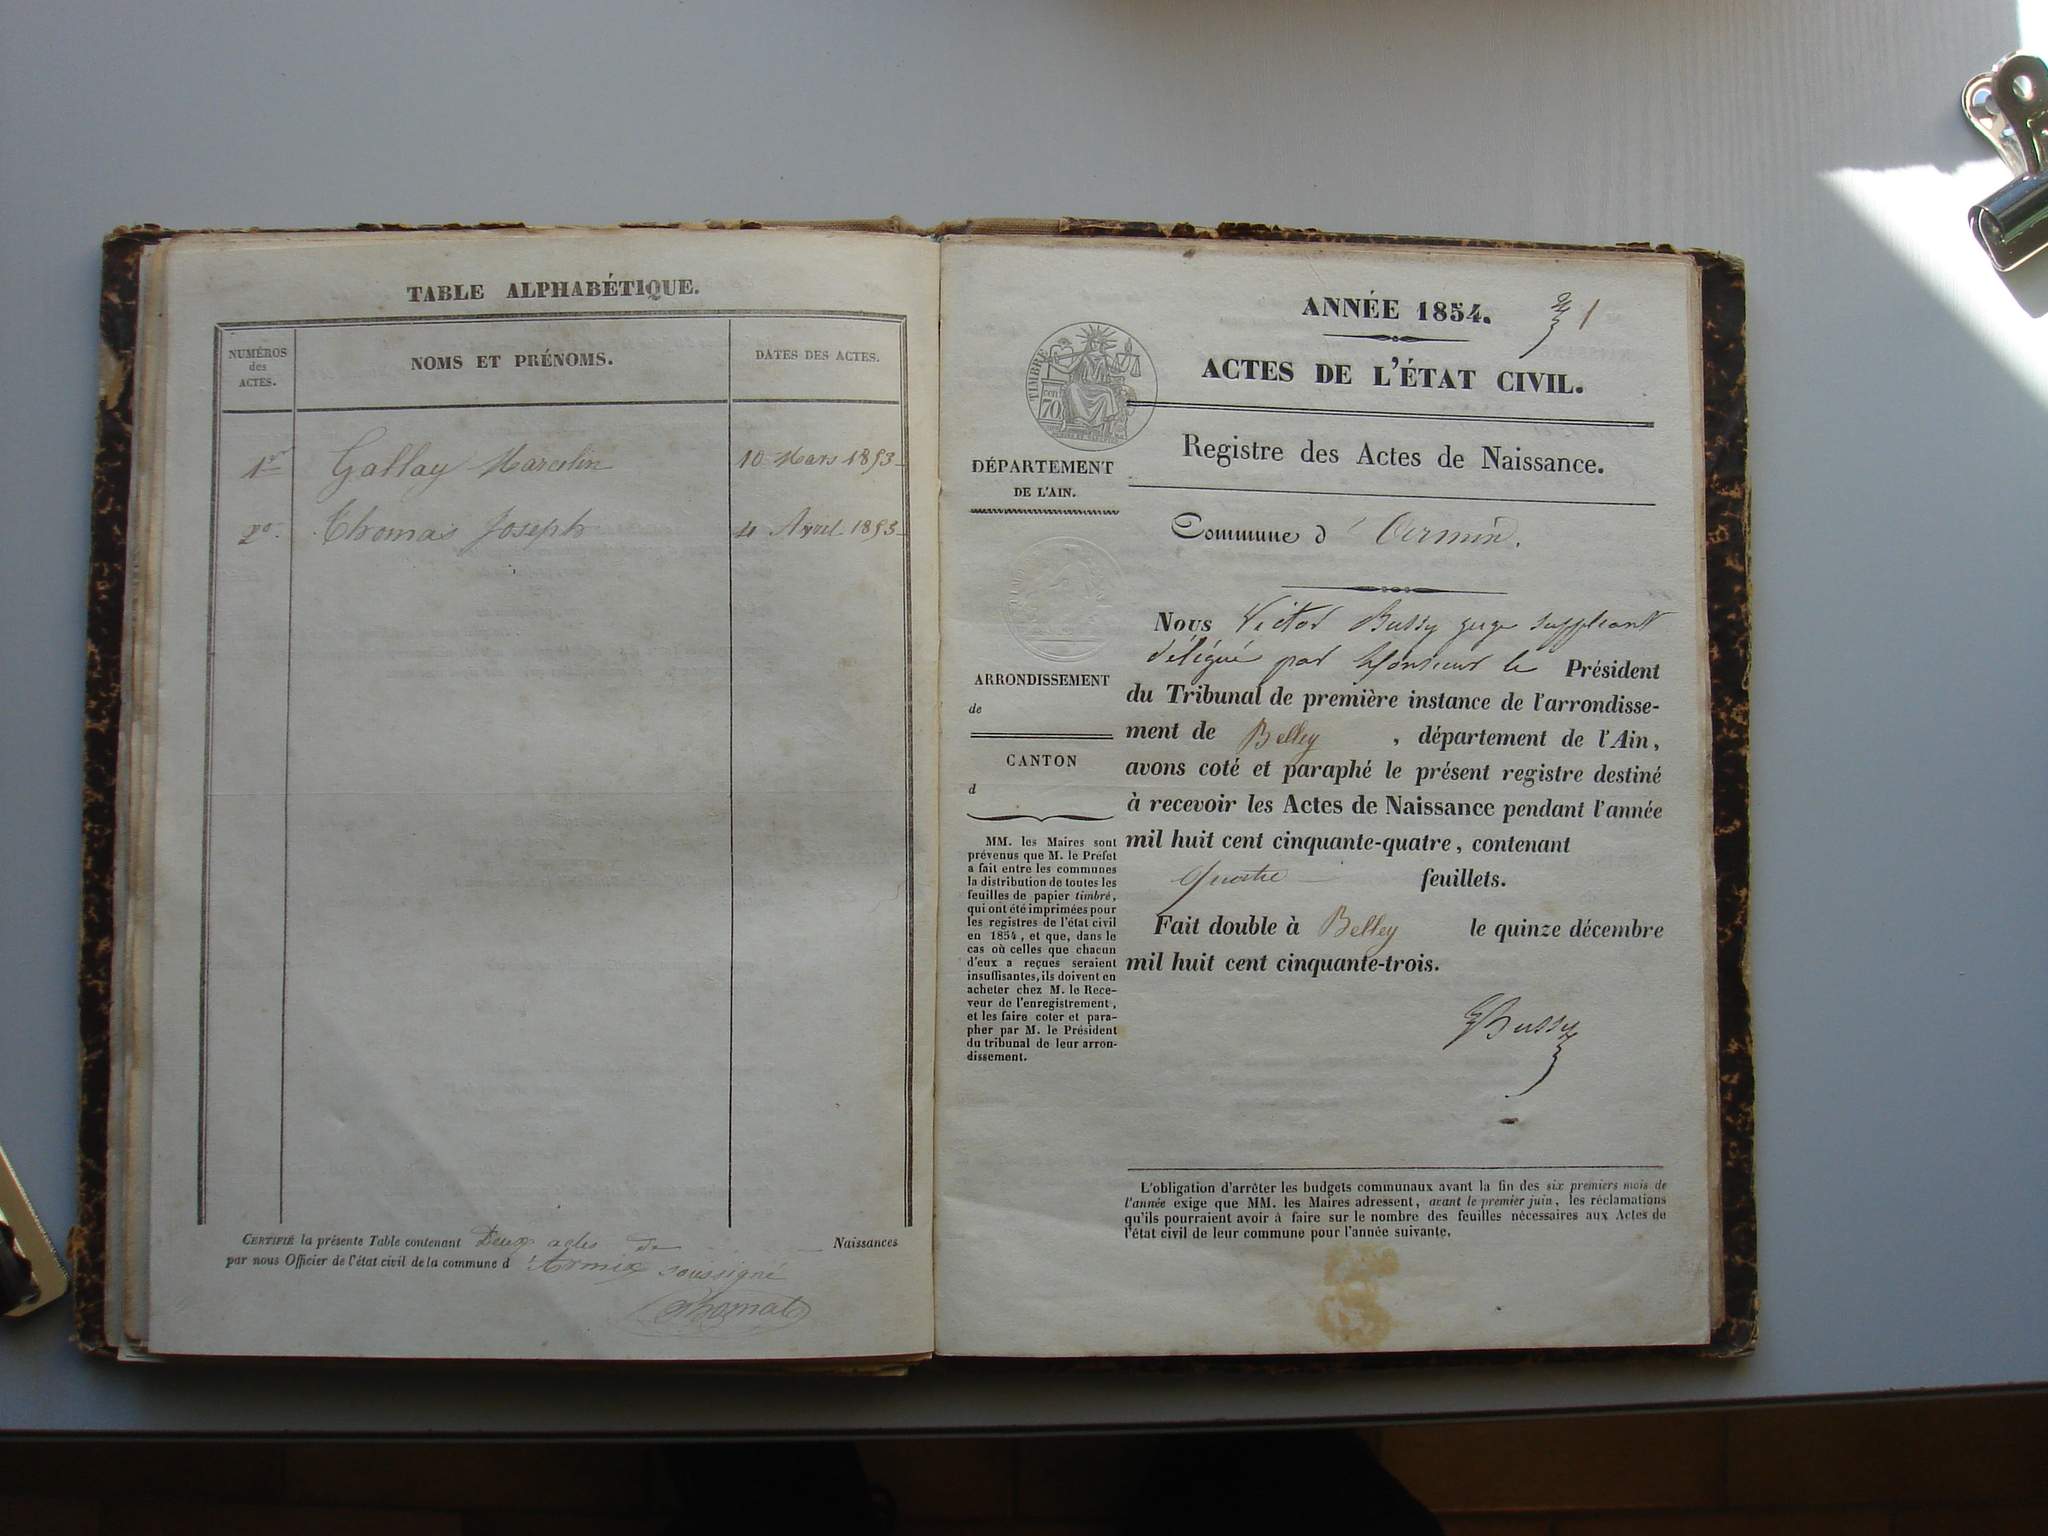 TABLE ALPHABÉTIQUE.
NUMÉROS
des
ACTES.
NOMS ET PRÉNOMS.
DATES DES ACTES.
1er Gallay Marcelin 10 Mars 1853
2o. Thomas Joseph 4 Avril 1853
CERTIFIÉ la présente Table contenant Deux actes de Naissances
par nous Officier de l'état civil de la commune d'Armix soussigné
ANNÉE 1854.
1
ACTES DE L'ÉTAT CIVIL.
TIMBRE
70
Registre des Actes de Naissance.
DÉPARTEMENT
DE L'AIN.
Commune d'
ARRONDISSEMENT
de
CANTON
d
MM. les Maires sont
prévenus que M. le Préfet
a fait entre les communes
la distribution de toutes les
feuilles de papier timbré,
qui ont été imprimées pour
les registres de l'état civil
en 1854, et que, dans le
cas où celles que chacun
d'eux a reçues seraient
insuffisantes, ils doivent en
acheter chez M. le Rece-
veur de l'enregistrement,
et les faire coter et para-
pher par M. le Président
du tribunal de leur arron-
dissement.
Nous Victor Bussy juge suppléant
délégué par Monsieur le Président
du Tribunal de première instance de l'arrondisse-
ment de Belley, département de l'Ain,
avons coté et paraphé le présent registre destiné
à recevoir les Actes de Naissance pendant l'année
mil huit cent cinquante-quatre, contenant
quatre feuillets.
Fait double à Belley le quinze décembre
mil huit cent cinquante-trois.
Bussy
L'obligation d'arrêter les budgets communaux avant la fin des six premiers mois de
l'année exige que MM. les Maires adressent, avant le premier juin, les réclamations
qu'ils pourraient avoir à faire sur le nombre des feuilles nécessaires aux Actes de
l'état civil de leur commune pour l'année suivante.